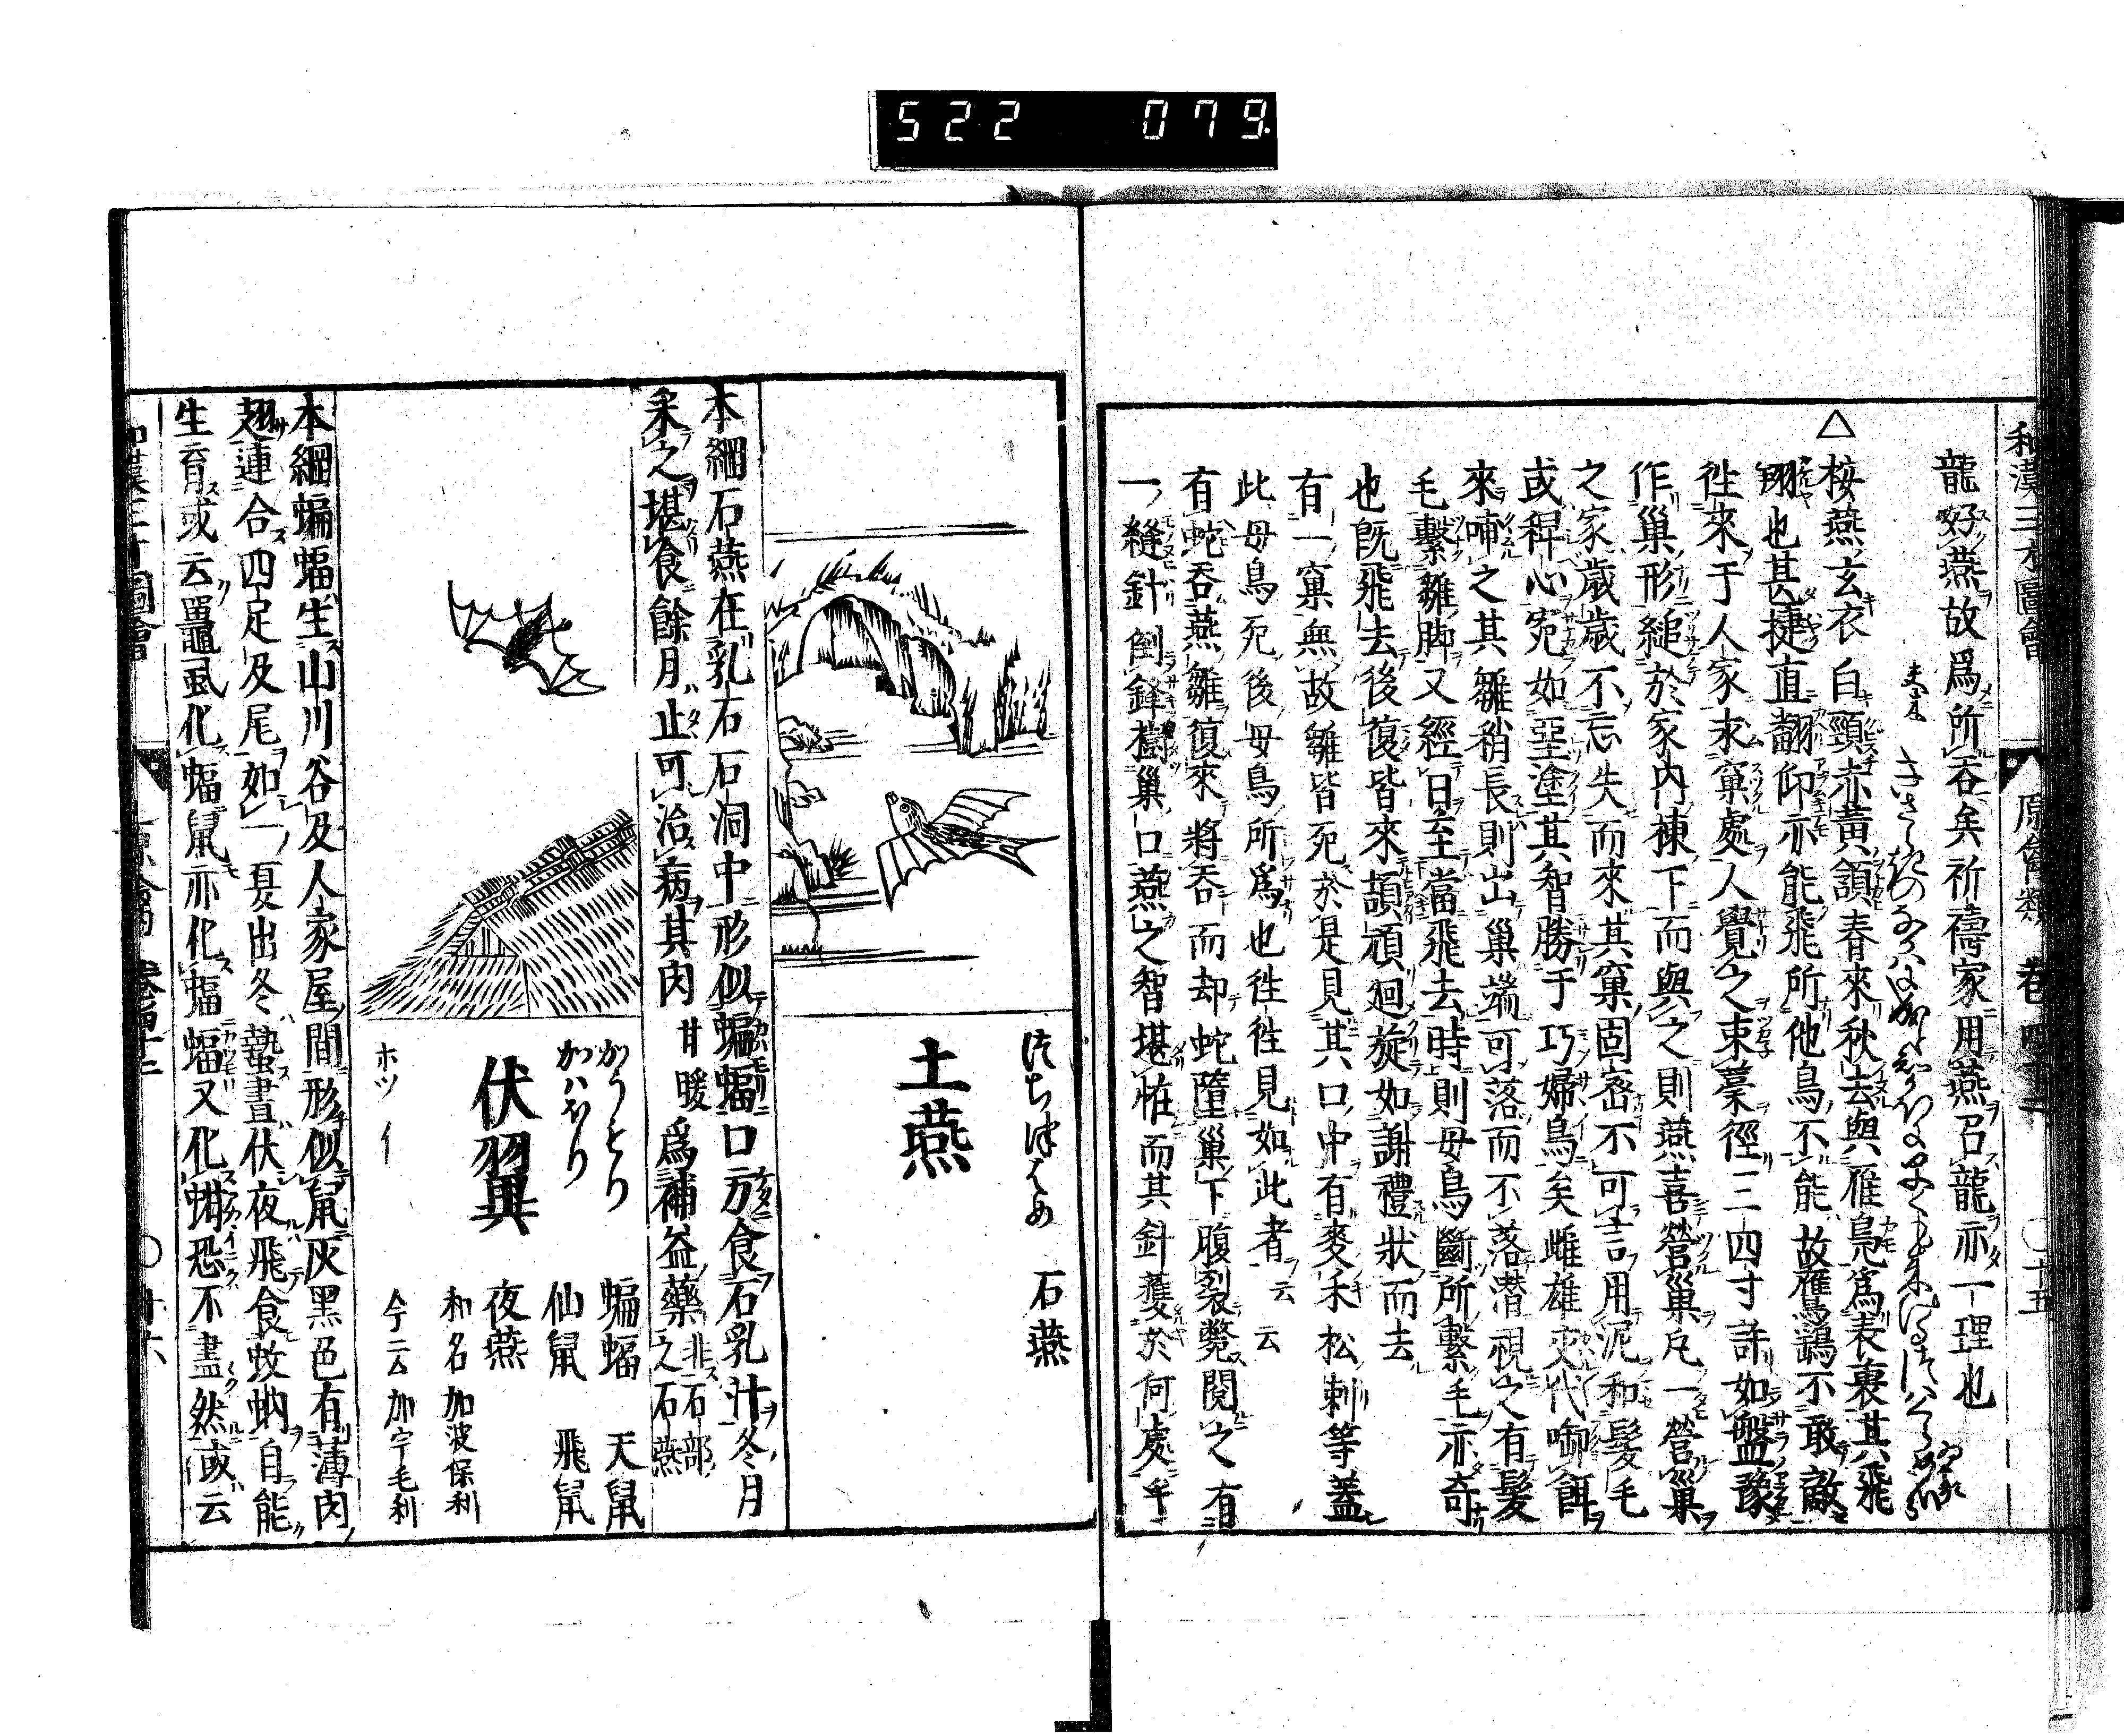 522 079
和漢三才圖會 原禽類 卷四十二 〇十五
龍好燕故爲所吞矣祈禱家用燕召龍亦一理也
夫木 きさらきの
△桉燕玄衣白頸赤黃頷春來秋去與雁鳬爲表裏其飛
翔也甚捷直翻仰亦能飛所他鳥不能故鷹鷂不敢敵
徃來于人家求窠處人覺之束藁徑三四寸許如盤豫
作巢形縋於家内棟下而與之則燕喜營巢凡一營巢
之家歲歲不忘失而來其窠固宻不可言用泥和髮毛
或稈心宛如堊塗其智勝于巧婦鳥矣雌雄交代啣餌
來哺之其雛稍長則出巢端可落而不落潜視之有髮
毛繫雛脚又經日至當飛去時則母鳥斷所繫毛亦奇
也既飛去後復皆來頡頏廻旋如謝禮狀而去
有一窠無故雛皆死於是見其口中有麥禾松刺等蓋
此母鳥死後母鳥所爲也徃徃見如此者云云
有蛇吞燕雛復來將吞而却蛇墮巢下腹裂斃閲之有
一縫針倒鋒樹巢口燕之智堪恠而其針獲於何處乎
つちつはめ 石燕
土燕
本綱石燕在乳石石洞中形似蝙蝠口方食石乳汁冬月
采之堪食餘月止可治病其肉 甘暖 爲補益藥 非石部之石燕
かうもり
かハほり
伏翼
ホツ イ
蝙蝠 天鼠
仙鼠 飛鼠
夜燕
和名加波保利
今云加宇毛利
本綱蝙蝠生山川谷及人家屋間形似鼠灰黑色有薄肉
翅連合四足及尾如一夏出冬蟄晝伏夜飛食蚊蚋自能
生育或云鼉虱化蝠鼠亦化蝠蝠又化蚶恐不盡然或云